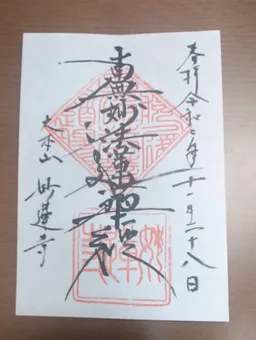 奉拝 令和二年十一月二十八日
南無妙法蓮華経
大本山 妙蓮寺